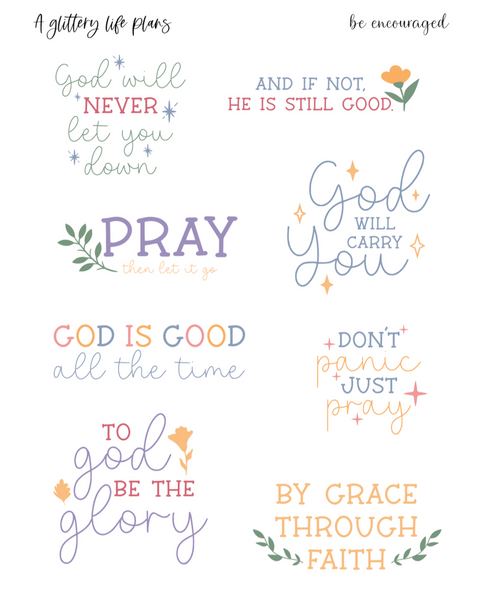 A glittery life plans
be encouraged
God will
NEVER
let you
down
AND IF NOT,
HE IS STILL GOOD.
PRAY
then let it go
God
WILL
CARRY
You
GOD IS GOOD
all the time
DON'T
panic
JUST
pray
TO
god
BE THE
glory
BY GRACE
THROUGH
FAITH